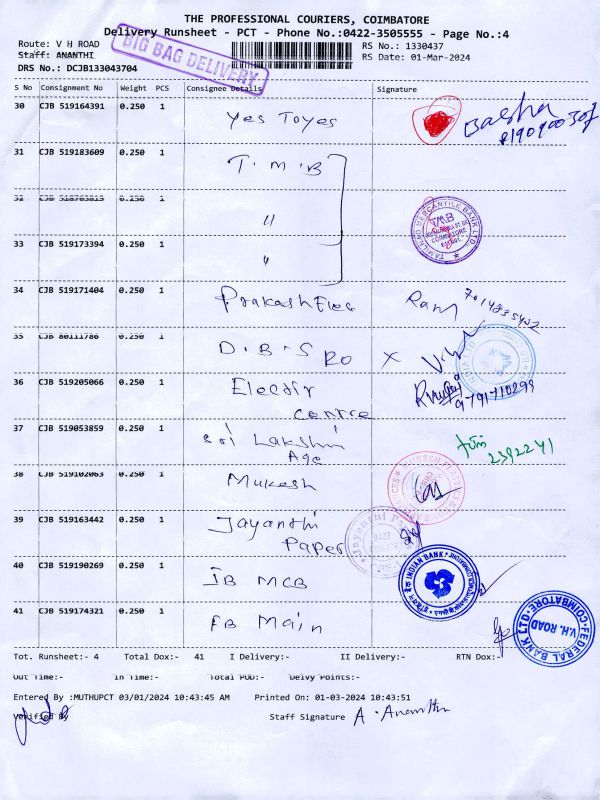 THE PROFESSIONAL COURIERS, COIMBATORE
Delivery Runsheet - PCT - Phone No.:0422-3505555 - Page No.:4
Route: V H ROAD RS No.: 1330437
Staff: ANANTHI RS Date: 01-Mar-2024
BIG BAG DELIVERY
DRS No.: DCJB133043704
S No Consignment No Weight PCS Consignee Details Signature
30 CJB 519164391 0.250 1 Yes Toyes Basha
31 CJB 519183609 0.250 1 T.M.B
32 CJB 518765815 0.250 1 〃
TAMILNAD MERCANTILE BANK LTD. TMB COIMBATORE
33 CJB 519173394 0.250 1 〃
34 CJB 519171404 0.250 1 Prakash Elec Ram 7014835452
35 CJB 80111786 0.250 1 D.B.S RO X
36 CJB 519205066 0.250 1 Electir 9791710299
centre
37 CJB 519053859 0.250 1 Sri Lakshmi 2392241
Age
38 CJB 519102063 0.250 1 Mukesh
39 CJB 519163442 0.250 1 Jayanthi
Paper
40 CJB 519190269 0.250 1 IB MCB INDIAN BANK
41 CJB 519174321 0.250 1 FB Main FEDERAL BANK LTD. V.H. ROAD COIMBATORE
Tot. Runsheet:- 4 Total Dox:- 41 I Delivery:- II Delivery:- RTN Dox:-
Out Time:- In Time:- Total POD:- Delvy Points:-
Entered By :MUTHUPCT 03/01/2024 10:43:45 AM Printed On: 01-03-2024 10:43:51
Verified By Staff Signature A. Ananthi